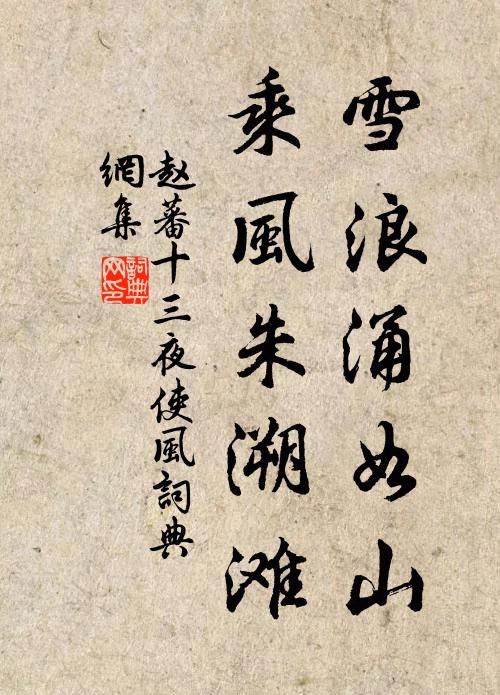 雪浪涌如山
乘風朱溯滩
赵蕃十三夜使風詞典
網集
詞典网印